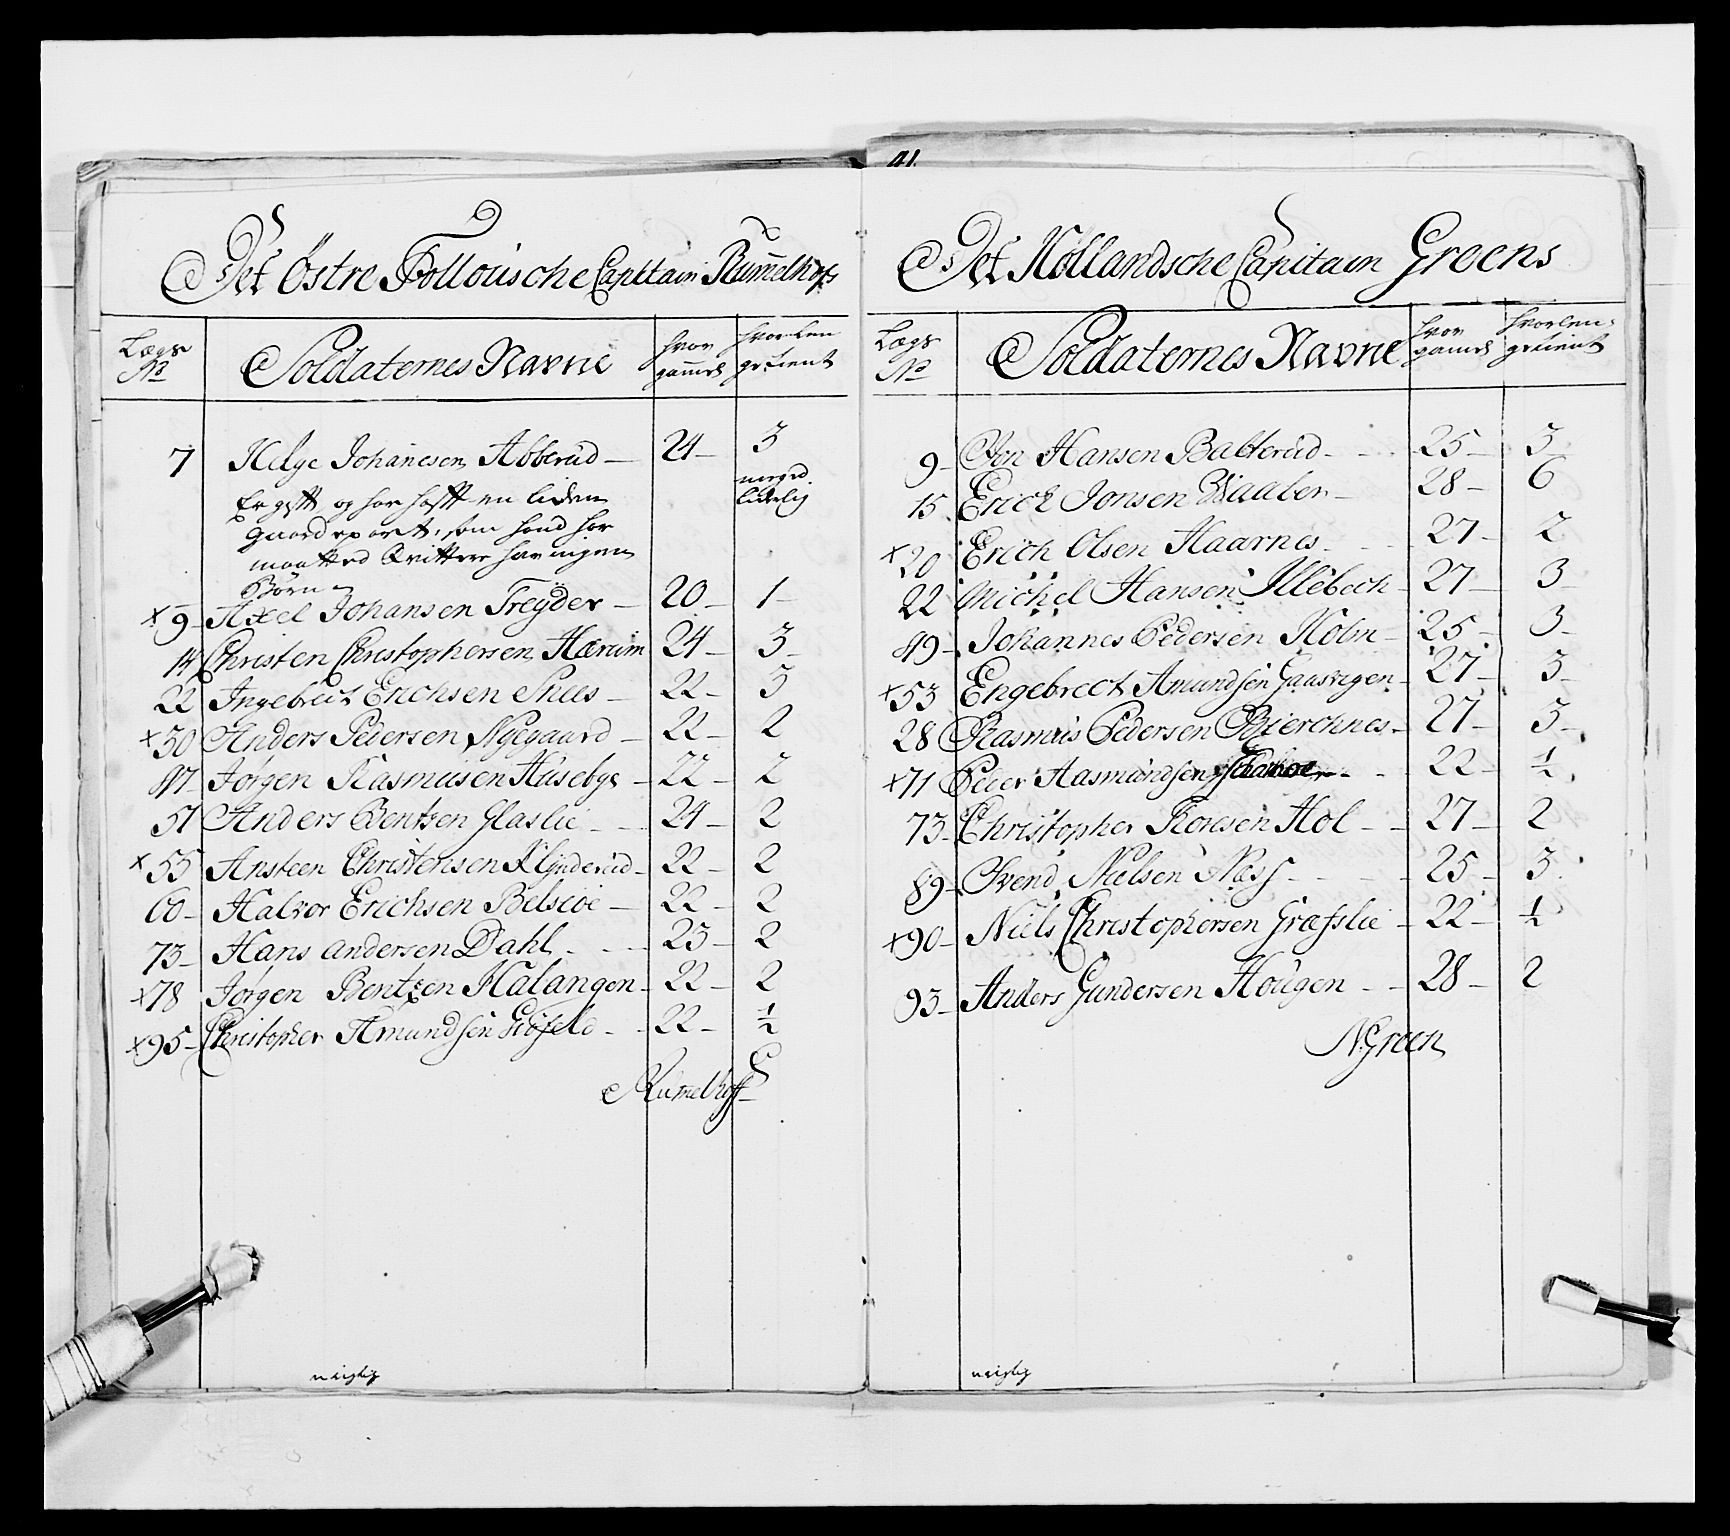 41.
Det Östre Follouische Capitain Rummelhofs
Lægs No Soldaternes Navne hvor gammel hvorlenge tient
7 Helge Johanesen Abberud — 24 — 3
Er gift og har haft en liden
gaard part, som hand har
maatted Qvittere har ingen
Børn
x 9 Axel Johansen Treyder — 20 — 1 —
14 Christen Christophersen Hærum 24 — 3 —
22 Ingebret Erichsen Snees — 22 — 3
x 30 Anders Pedersen Nyegaard — 22 — 2
47 Jørgen Rasmusen Husebye — 22 — 2
51 Anders Bentsen Glaslie — 24 — 2
x 55 Ansteen Christensen Klynderud — 22 — 2
60 — Halvor Erichsen Belsiøe — 22 — 2
73 — Hans Andersen Dahl — 23 — 2
x 78 Jørgen Bentzen Halangen — 22 — 2
x 95 — Christopher Amundsen — 22 — ½
Rumelhoff
Det Nollandsche Capitain Groens
Lægs No Soldaternes Navne hvor gammel hvorlenge tient
9 — Jon Hansen Balterud — 25 — 3
15 Erich Jonsen — 28 — 6
x 20 Erich Olsen Haarnes — 27 — 2
22 Michel Hansen Illebech — 27 — 3 —
49 — Johannes Pedersen Holm — 25 — 3 —
x 53 Engebrect Amundsen Gaasvigen — 27 — 3 —
28 Rasmus Pedersen Bierchnes — 27 — 3 —
x 71 Peder Aasmundsen — 22 — ½
73 — Christopher Toresen Hol — 27 — 2
89 — Svend Nielsen Næss — 25 — 3
x 90 — Niels Christophersen Græsslie — 22 — ½
93 — Anders Gundersen Hougen — 28 — 2
N. Groen